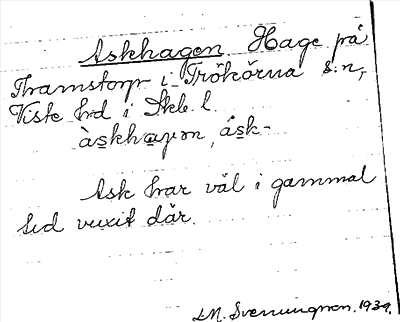 Askhagen. Hage på
Thamstorp i Trökörna s:n,
Viste hrd i Skb. l.
àskhaɣən, ásk-
Ask har väl i gammal
tid vuxit där.
M. Svenungson. 1939.